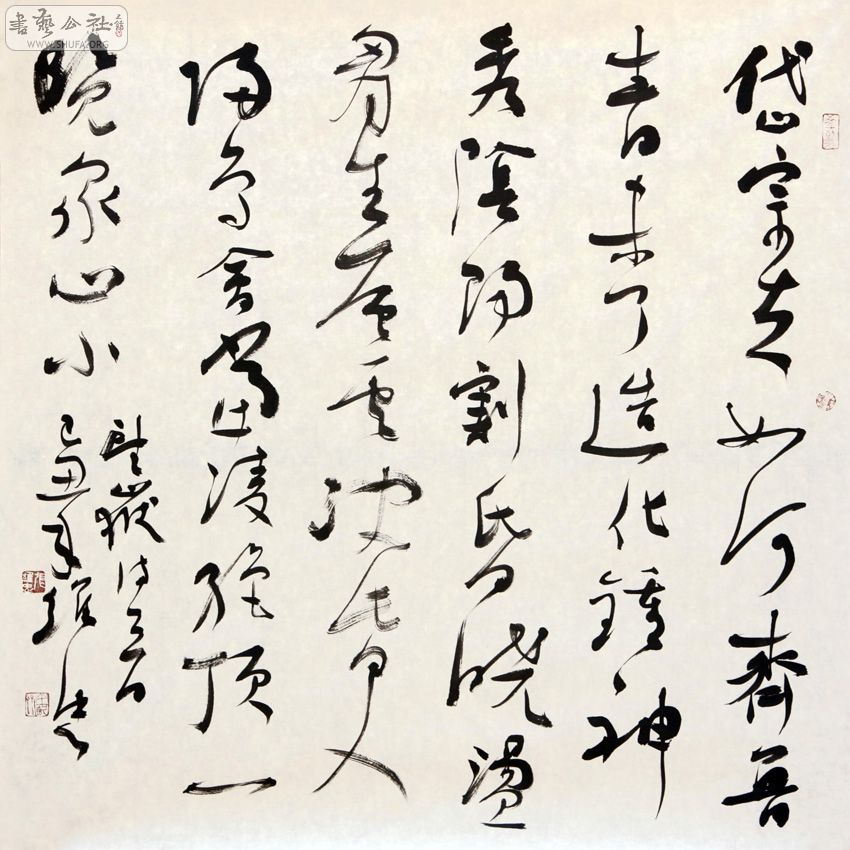 書藝公社
WWW.SHUFA.ORG
岱宗夫如何齊魯
青未了造化鍾神
秀陰陽割昏曉盪
胷生層雲決眥入
歸鳥會當凌絕頂一
覽眾山小
望嶽詩一首
己丑年